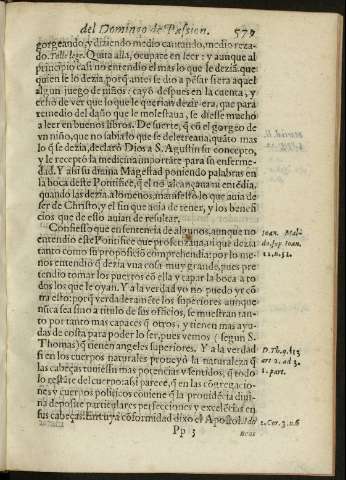 del Domingo de Passion. 57
gorgeando, y diziendo medio cantando, medio reza-
do. Tolle lege. Quita alla, ocupate en leer: y aunque al
principio casi no entendio el mas lo que le dezia, que
quien se lo dezia, porq̃ antes se dio a pẽsar si era aquel
algun juego de niños: cayò despues en la cuenta, y
echò de ver que lo que le querian dezir era, que para
remedio del daño que le molestaua, se diesse mucho
a leer en buenos libros. De suerte, q̃ en el gorgeo de
vn niño, que no sabia lo que se deletreaua, quãto mas
lo q̃ se dezia, declarò Dios a S. Agustin su concepto,
y le receptò la medicina importãte para su enferme-
dad. Y assi su diuina Magestad poniendo palabras en
la boca deste Pontifice, q̃ el no alcançaua ni entẽdia,
quando las dezia, alomenos, manifestò lo que auia de
ser de Christo, y el fin que auia de tener, y los benefi
cios que de esto auian de resultar.
Confiesso que en sentencia de algunos, aunque no
entendio este Pontifice que profetizaua ni que dezia
tanto como su proposicion comprehendia: por lo me
nos entendio q̃ dezia vna cosa muy grande, pues pre
tendio tomar los puertos cõ ella y capar la boca a to
dos los que le oyan. Y a la verdad yo no puedo yr cõ
tra esto: porq̃ verdaderamẽte los superiores aunque
nũca sea sino a titulo de sus oficios, se muestran tan-
to por tanto mas capaces q̃ otros, y tienen mas ayu
das de costa para poder lo ser, pues vemos (segun S.
Thomas) q̃ tienen angeles superiores. Y a la verdad
si en los cuerpos naturales proueyò la naturaleza q̃
las cabeças tuuiessen mas potencias y sentidos, q̃ todo
lo restãte del cuerpo: assi parece, q̃ en las cõgregacio
nes y cuerpos politicos conuiene q̃ la prouidẽcia diui-
na deposite particulares perfecciones y excelẽcias en
sus cabeças. En cuya cõformidad dixo el Apostol.
Pp 3
Ioan. Mal-
do. sup. Ioan.
11. n. 51.
D. Th. q. 113
art. 2. ad 3.
1. part.
2. Cor. 3. n. 6